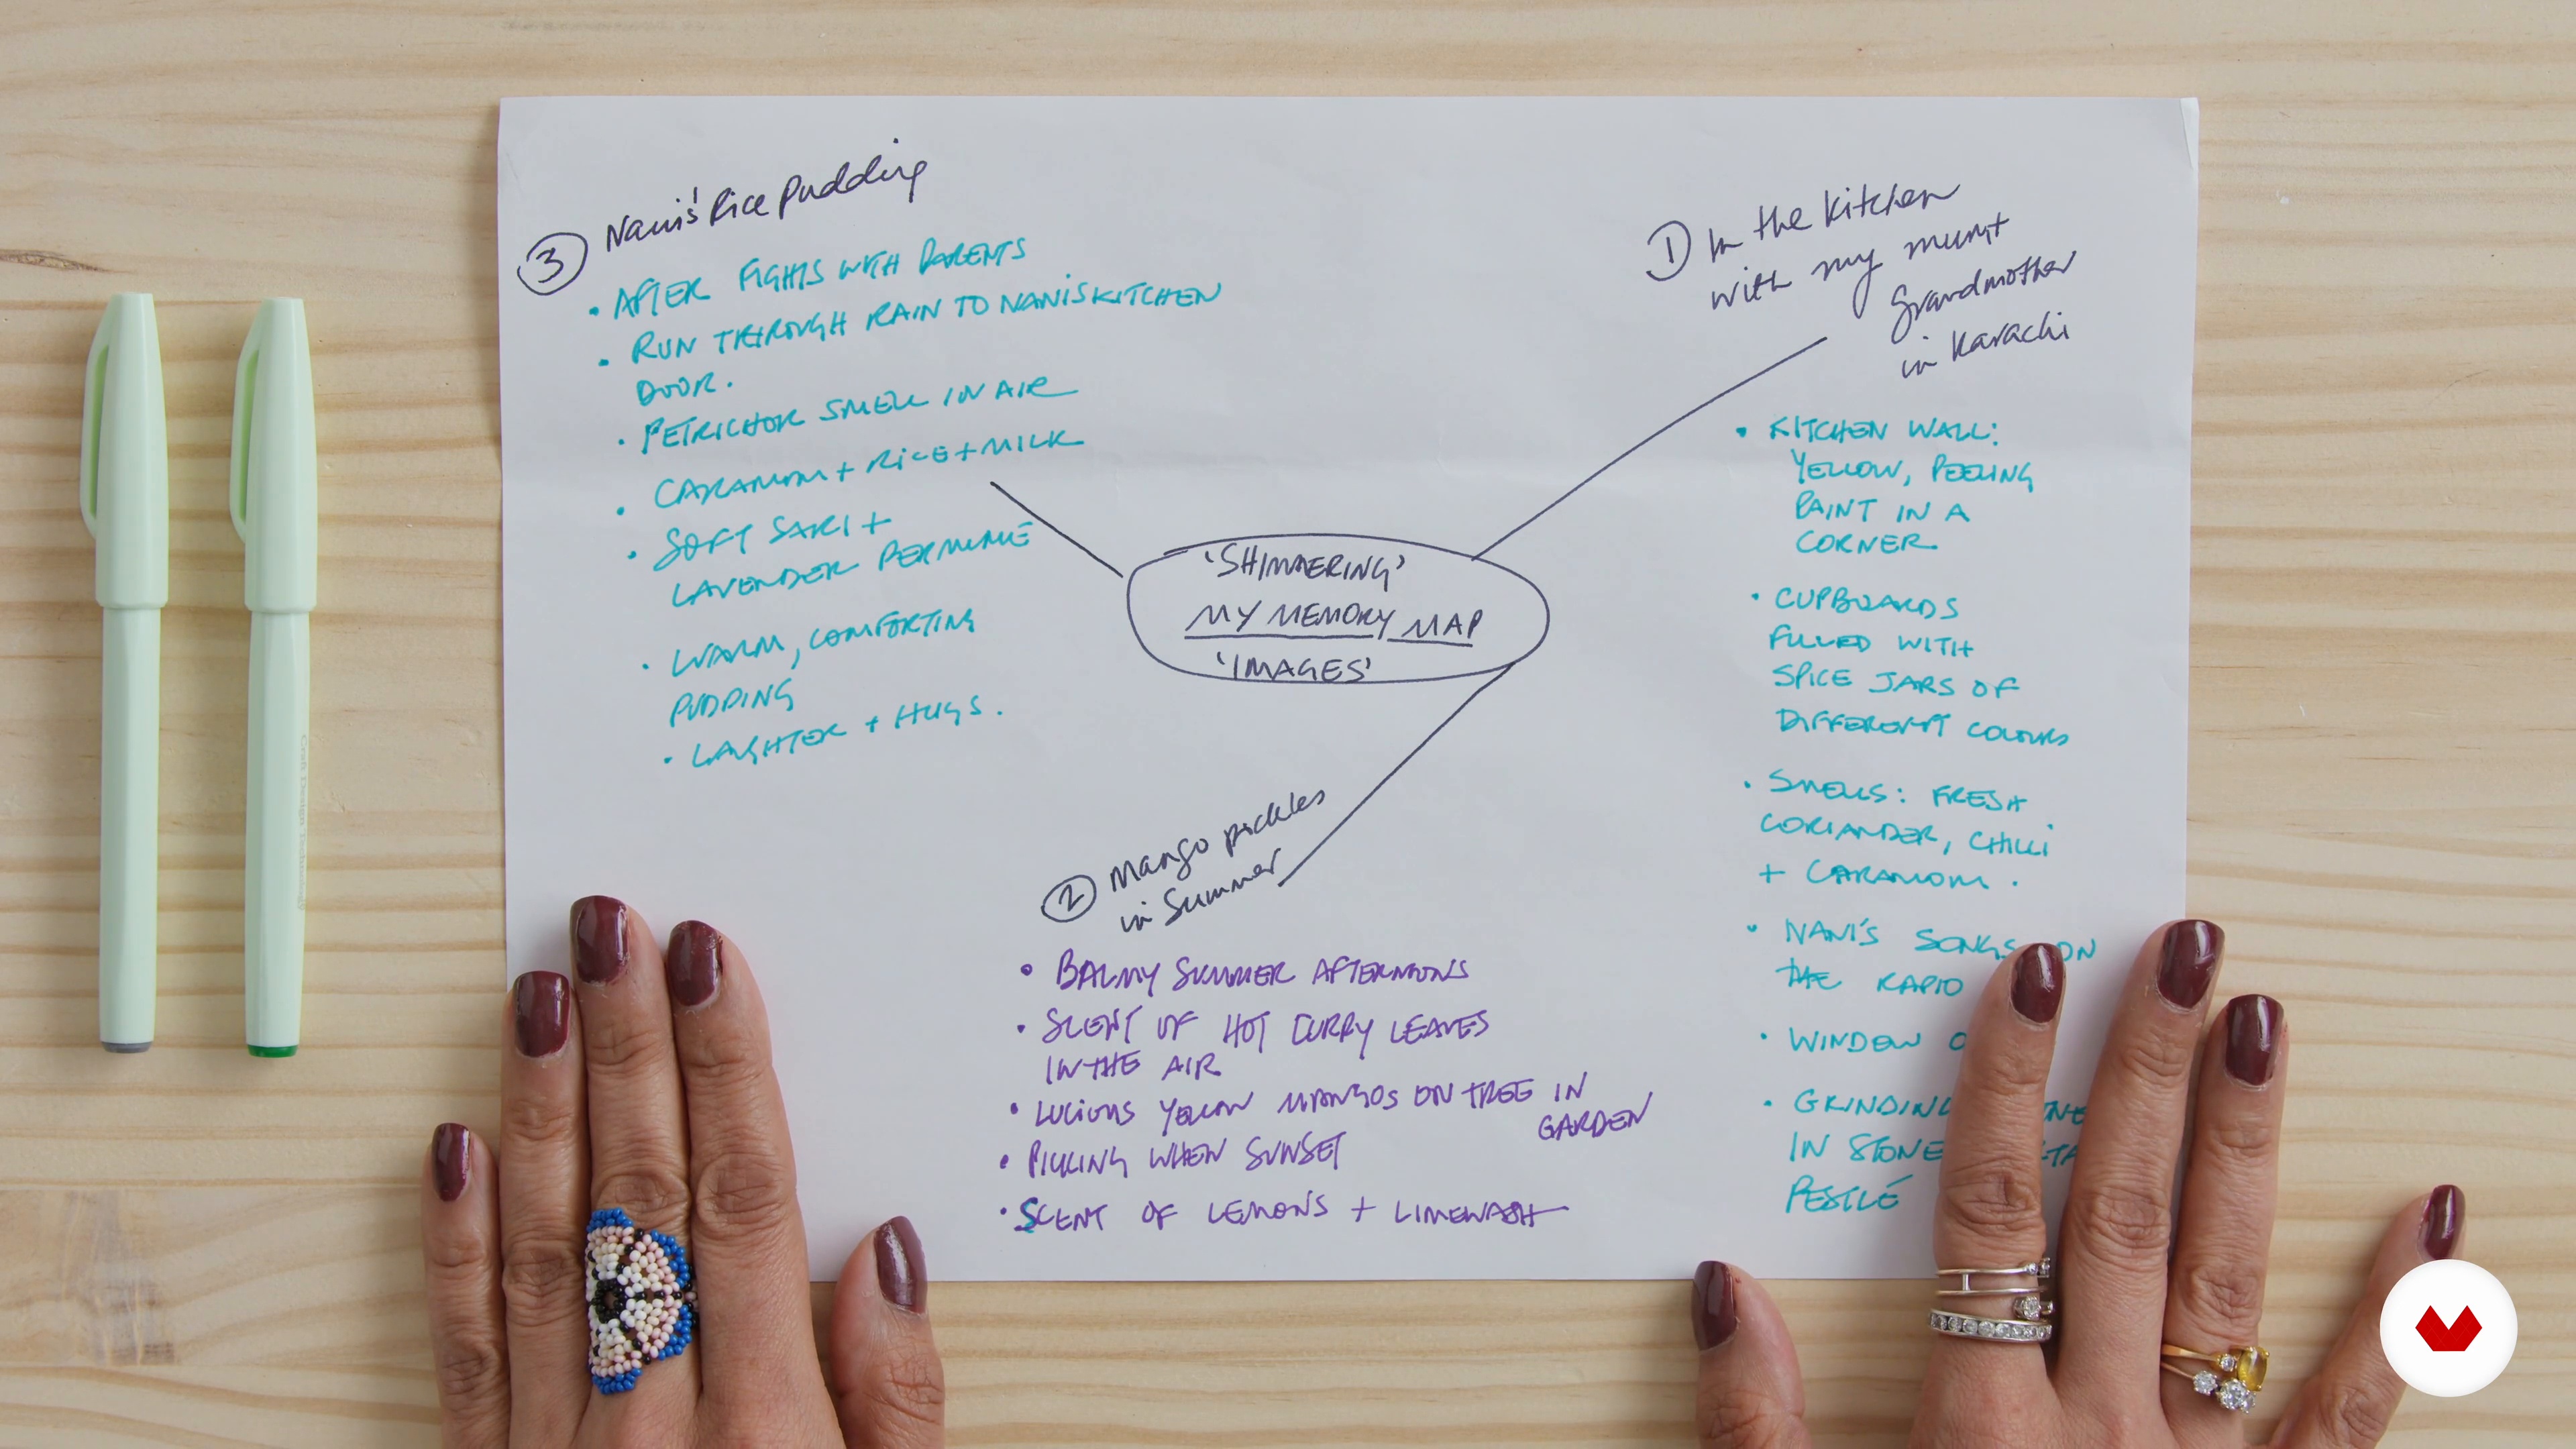 ③ Nani's Rice Pudding
• AFTER FIGHTS WITH PARENTS
• RUN THROUGH RAIN TO NANI'S KITCHEN
DOOR.
• PETRICHOR SMELL IN AIR
• CARAMOM + RICE + MILK
• SOFT SARI +
LAVENDER PERMUME
• WARM, COMFORTING
PUDDING
• LAUGHTER + HUGS.
'SHIMMERING'
MY MEMORY MAP
'IMAGES'
① In the kitchen
with my mum +
Grandmother
in Karachi
• KITCHEN WALL:
YELLOW, PEELING
PAINT IN A
CORNER
• CUPBOARDS
FILLED WITH
SPICE JARS OF
DIFFERENT COLOURS
• SMELLS: FRESH
CORIANDER, CHILLI
+ CARAMOM.
• NANI'S SONGS ON
THE RADIO
• WINDOW
• GRINDING
IN STONE
PESTLE
② Mango pickles
in Summer
• BALMY SUMMER AFTERNOONS
• SCENT OF HOT CURRY LEAVES
IN THE AIR
• LUCIOUS YELLOW MANGOS ON TREE IN
GARDEN
• PICKING WHEN SUNSET
• SCENT OF LEMONS + LIMEWASH
Craft Design Technology